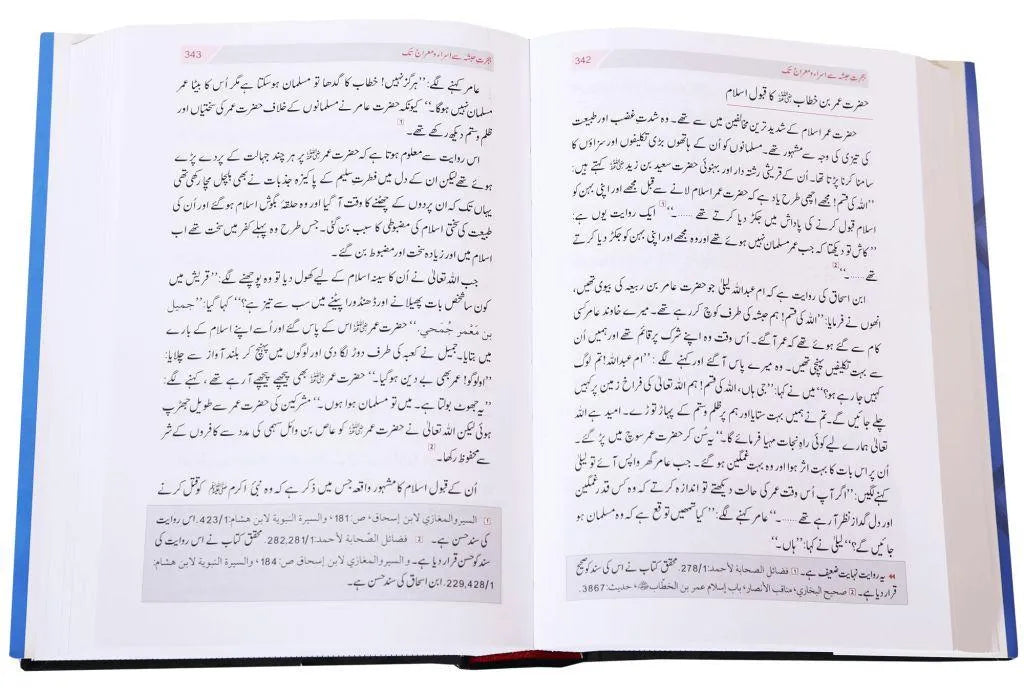 ہجرت حبشہ سے اسراء و معراج تک 342
حضرت عمر بن خطاب ؓ کا قبول اسلام
حضرت عمر اسلام کے شدید ترین مخالفین میں سے تھے۔ وہ شدتِ غضب اور طبیعت
کی تیزی کی وجہ سے مشہور تھے۔ مسلمانوں کو اُن کے ہاتھوں بڑی تکلیفوں اور سزاؤں کا
سامنا کرنا پڑتا تھا۔ اُن کے قریشی رشتہ دار اور بہنوئی حضرت سعید بن زید ؓ کہتے ہیں:
’’اللہ کی قسم! مجھے اچھی طرح یاد ہے کہ حضرت عمر اسلام لانے سے قبل مجھے اور اپنی بہن کو
اسلام قبول کرنے کی پاداش میں جکڑ دیا کرتے تھے ......۔‘‘ [1] ایک روایت یوں ہے:
’’کاش تو دیکھتا کہ جب عمر مسلمان نہیں ہوئے تھے اور وہ مجھے اور اپنی بہن کو جکڑ دیا کرتے
تھے ......۔‘‘ [2]
ابن اسحاق کی روایت ہے کہ ام عبداللہ لیلیٰ جو حضرت عامر بن ربیعہ کی بیوی تھیں،
انھوں نے فرمایا: ’’اللہ کی قسم! ہم حبشہ کی طرف کوچ کر رہے تھے۔ میرے خاوند عامر کسی
کام سے گئے ہوئے تھے کہ عمر آ گئے۔ اُس وقت وہ اپنے شرک پر قائم تھے اور ہمیں اُن
سے بہت تکلیفیں پہنچی تھیں۔ وہ میرے پاس آ گئے اور کہنے لگے: ’’ام عبداللہ! تم لوگ
کہیں جا رہے ہو؟‘‘ میں نے کہا: ’’جی ہاں، اللہ کی قسم! ہم اللہ تعالیٰ کی فراخ زمین پر کہیں
چلے جائیں گے۔ تم نے ہمیں بہت ستایا اور ہم پر ظلم و ستم کے پہاڑ توڑے۔ امید ہے اللہ
تعالیٰ ہمارے لیے کوئی راہِ نجات مہیا فرمائے گا۔‘‘ یہ سُن کر حضرت عمر سوچ میں پڑ گئے۔
اُن پر اس بات کا بہت اثر ہوا اور وہ بہت غمگین ہو گئے۔ جب عامر گھر واپس آئے تو لیلیٰ
کہنے لگیں: ’’اگر آپ اُس وقت عمر کی حالت دیکھتے تو اندازہ کرتے کہ وہ کس قدر غمگین
اور دل گداز نظر آ رہے تھے ......۔‘‘ عامر کہنے لگے: ’’کیا تمھیں توقع ہے کہ وہ مسلمان ہو
جائیں گے؟‘‘ لیلیٰ نے کہا: ’’ہاں۔‘‘
◄◄ یہ روایت نہایت ضعیف ہے۔ [1] فضائل الصحابة لأحمد: 278/1. محقق کتاب نے اس کی سند کو صحیح
قرار دیا ہے۔ [2] صحیح البخاري، مناقب الأنصار، باب إسلام عمر بن الخطاب ؓ، حدیث: 3867.
ہجرت حبشہ سے اسراء و معراج تک 343
عامر کہنے لگے: ’’ہرگز نہیں! خطاب کا گدھا تو مسلمان ہو سکتا ہے مگر اُس کا بیٹا عمر
مسلمان نہیں ہوگا۔‘‘ کیونکہ حضرت عامر نے مسلمانوں کے خلاف حضرت عمر کی سختیاں اور
ظلم و ستم دیکھ رکھے تھے۔ [1]
اس روایت سے معلوم ہوتا ہے کہ حضرت عمر ؓ پر ہر چند جہالت کے پردے پڑے
ہوئے تھے لیکن ان کے دل میں فطرتِ سلیم کے پاکیزہ جذبات نے بھی ہلچل مچا رکھی تھی
یہاں تک کہ ان پردوں کے چھٹنے کا وقت آ گیا اور وہ حلقہ بگوشِ اسلام ہو گئے اور اُن کی
طبیعت کی سختی اسلام کی مضبوطی کا سبب بن گئی۔ جس طرح وہ پہلے کفر میں سخت تھے اب
اسلام میں اور زیادہ سخت اور مضبوط بن گئے۔
جب اللہ تعالیٰ نے اُن کا سینہ اسلام کے لیے کھول دیا تو وہ پوچھنے لگے: ’’قریش میں
کون سا شخص بات پھیلانے اور ڈھنڈورا پیٹنے میں سب سے تیز ہے؟‘‘ کہا گیا: ’’جمیل
بن مَعْمر جُمَحي.‘‘ حضرت عمر ؓ اس کے پاس گئے اور اُسے اپنے اسلام کے بارے
میں بتایا۔ جمیل نے کعبہ کی طرف دوڑ لگا دی اور لوگوں میں پہنچ کر بلند آواز سے چلایا:
’’او لوگو! عمر بھی بے دین ہو گیا۔‘‘ حضرت عمر ؓ بھی پیچھے پیچھے آ رہے تھے، کہنے لگے:
’’یہ جھوٹ بولتا ہے۔ میں تو مسلمان ہوا ہوں۔‘‘ مشرکین کی حضرت عمر سے طویل جھڑپ
ہوئی لیکن اللہ تعالیٰ نے حضرت عمر ؓ کو عاص بن وائل سہمی کی مدد سے کافروں کے شر
سے محفوظ رکھا۔ [2]
اُن کے قبول اسلام کا مشہور واقعہ جس میں ذکر ہے کہ وہ نبیٔ اکرم ﷺ کو قتل کرنے
[1] السیر والمغازي لابن إسحاق، ص: 181، والسیرة النبویة لابن هشام: 423/1. اس روایت
کی سند حسن ہے۔ [2] فضائل الصحابة لأحمد: 282,281/1. محقق کتاب نے اس روایت کی
سند کو حسن قرار دیا ہے۔ والسیر والمغازي لابن إسحاق ص: 184، والسیرة النبویة لابن هشام:
229,428/1. ابن اسحاق کی سند حسن ہے۔